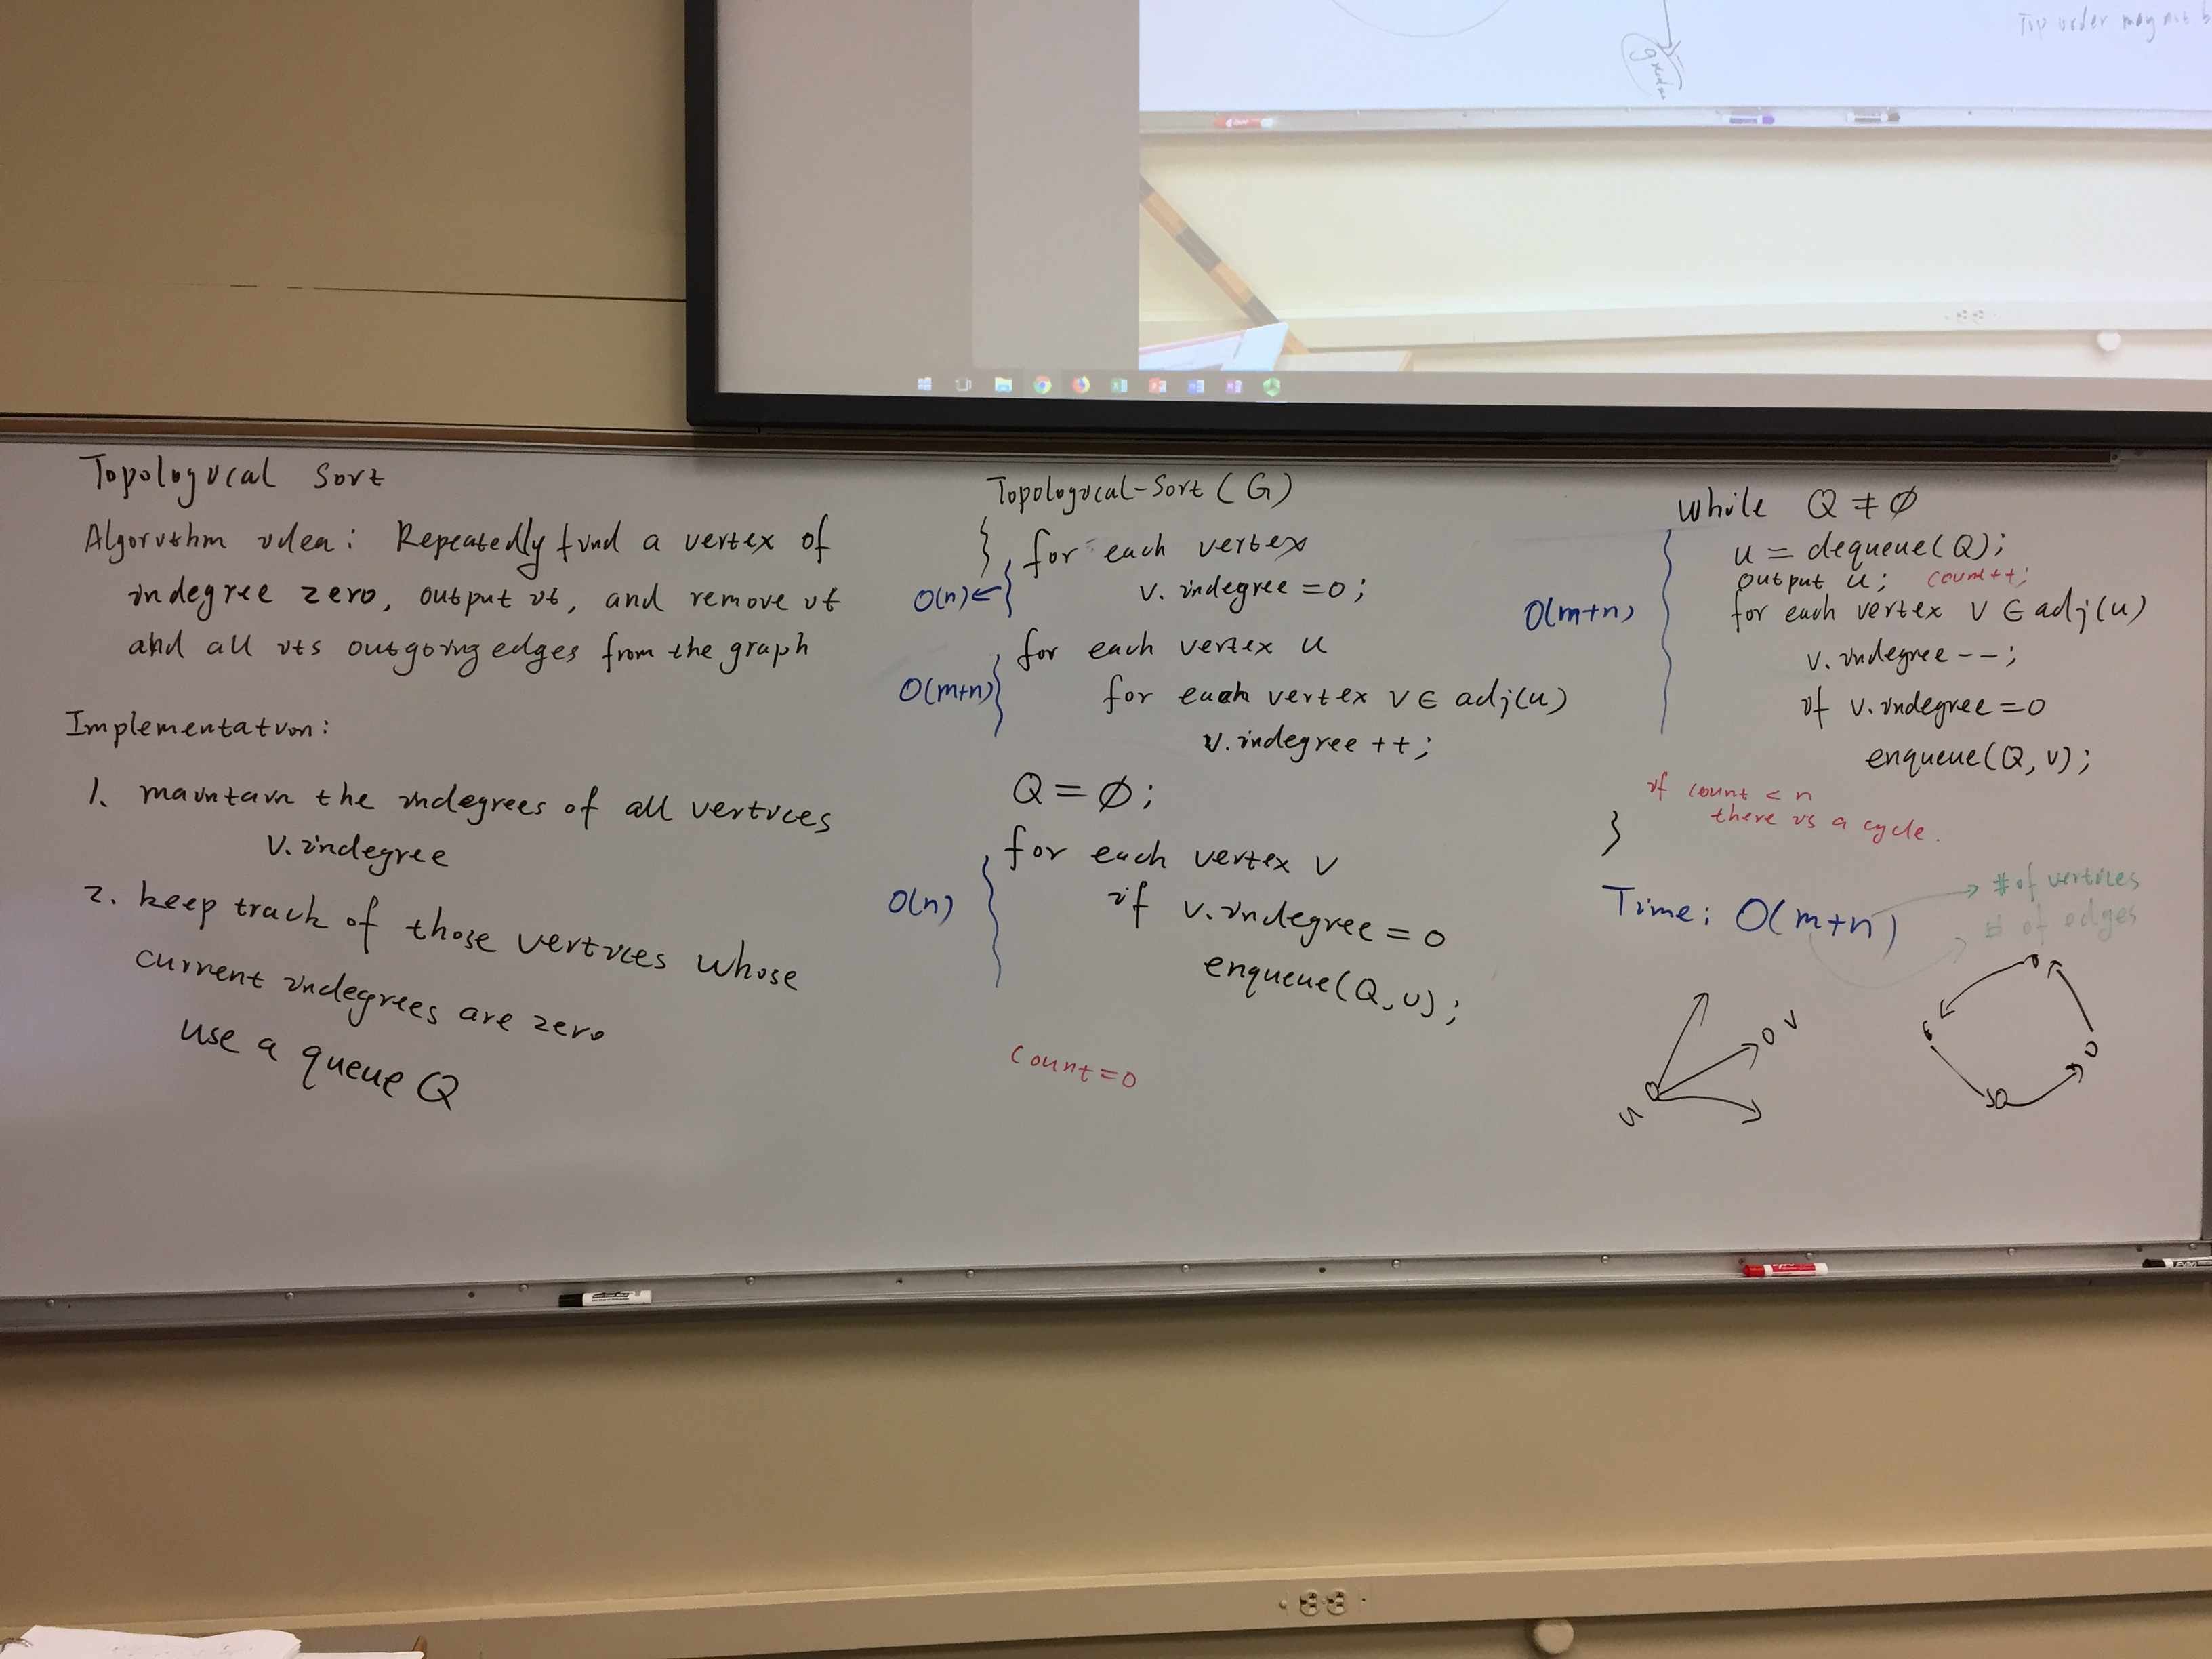 Top order may not b
Topological Sort
Algorithm idea: Repeatedly find a vertex of
indegree zero, output it, and remove it
and all its outgoing edges from the graph
Implementation:
1. maintain the indegrees of all vertices
v.indegree
2. keep track of those vertices whose
current indegrees are zero
use a queue Q
Topological-Sort (G)
{ for each vertex
O(n) ← v.indegree = 0;
for each vertex u
O(m+n) for each vertex v ∈ adj(u)
v.indegree ++;
Q = ∅;
for each vertex v
O(n) if v.indegree = 0
enqueue(Q, v);
count = 0
while Q ≠ ∅
u = dequeue(Q);
output u; count++;
O(m+n) for each vertex v ∈ adj(u)
v.indegree --;
if v.indegree = 0
enqueue(Q, v);
if count < n
there is a cycle.
}
Time: O(m+n) → # of vertices
# of edges
v
u